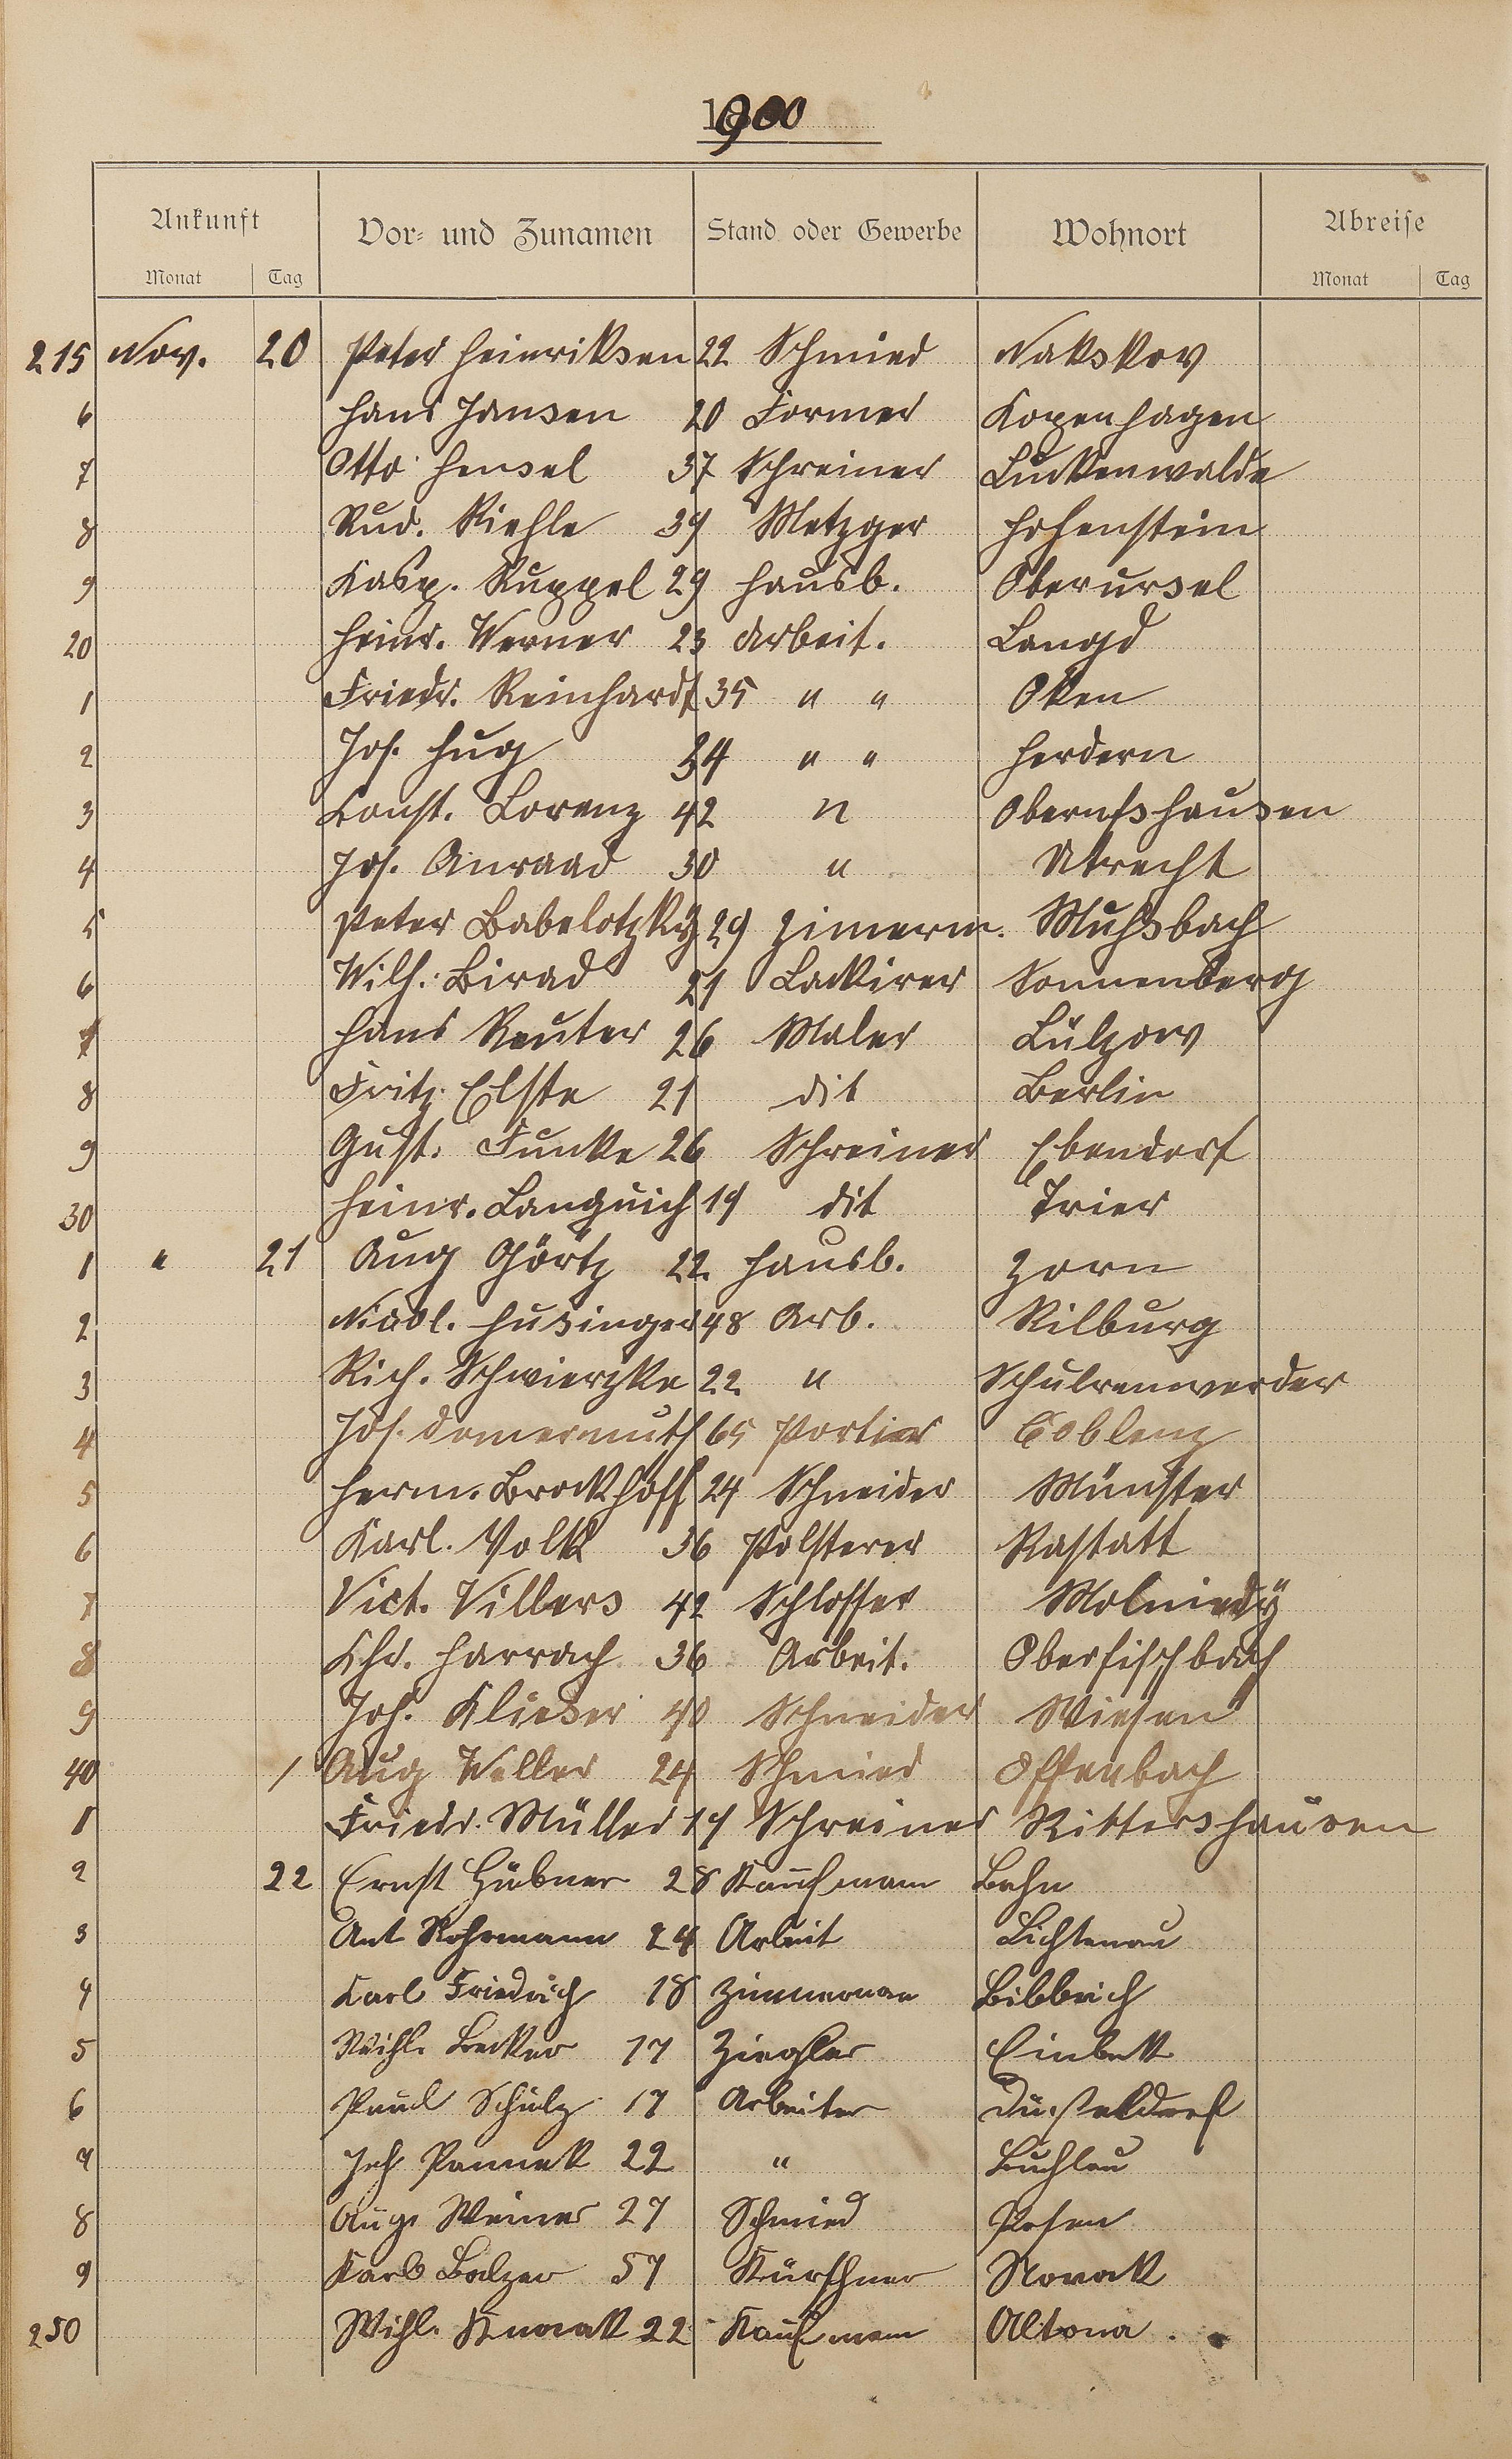 1900
Ankunft Vor- und Zunamen Stand oder Gewerbe Wohnort Abreise
Monat Tag Monat Tag
215 Nov. 20 Peter Heinriksen 22 Schmied Nakskov
6 Hans Jansen 20 Former Kopenhagen
7 Otto Hensel 37 Schreiner Luckenwalde
8 Rud. Riehle 39 Metzger Hohenstein
9 Kasp. Ruppel 29 Hausb. Oberursel
20 Heinr. Werner 23 Arbeit. Langd
1 Friedr. Reinhardt 35 " " Oken
2 Jos. Hug 34 " " Herdern
3 Const. Lorenz 42 " Obernfshausen
4 Jos. Anraad 30 " Utrecht
5 Peter Babelotzky 29 Zimerm. Muhsbach
6 Wilh. Birad 21 Lackirer Sonnenberg
7 Hans Reuter 26 Maler Lülzow
8 Fritz Elste 21 dit Berlin
9 Gust. Funke 26 Schreiner Ebendorf
30 Heinr. Languich 19 dit Trier
1 " 21 Aug Görtz 22 Hausb. Zorn
2 Husinger 48 Arb. Rilburg
3 Rich. Schwierzke 22 " Schulrenwerder
4 Jos. Domermuth 65 Portier Coblenz
5 Herm. Brockhoff 24 Schneider Münster
6 Karl. Volk 36 Polsterer Rastatt
7 Vict. Villers 42 Schlosser Malmedy
8 Chr. Harrach 36 Arbeit. Oberfischbach
9 Joh. Klieser 40 Schneider Wiesen
40 / Aug Weller 24 Schmied Offenbach
1 Friedr. Müller 19 Schreiner Rittershausen
2 22 Ernst Hübner 28 Kaufmann Bahn
3 Ant Rohrmann 24 Arbeit Lichtenau
4 Karl Friedrich 18 Zimmerman Bibbrich
5 Wilh. Becker 17 Ziegler Einbek
6 Paul Schulz 17 Arbeiter Düsseldorf
7 Joh Pannek 22 " Buchlau
8 Aug. Weiner 27 Schmied Posen
9 Karl Balzer 57 Kürschner Norok
250 Wilh. Knorak 22 Kaufmann Altona.